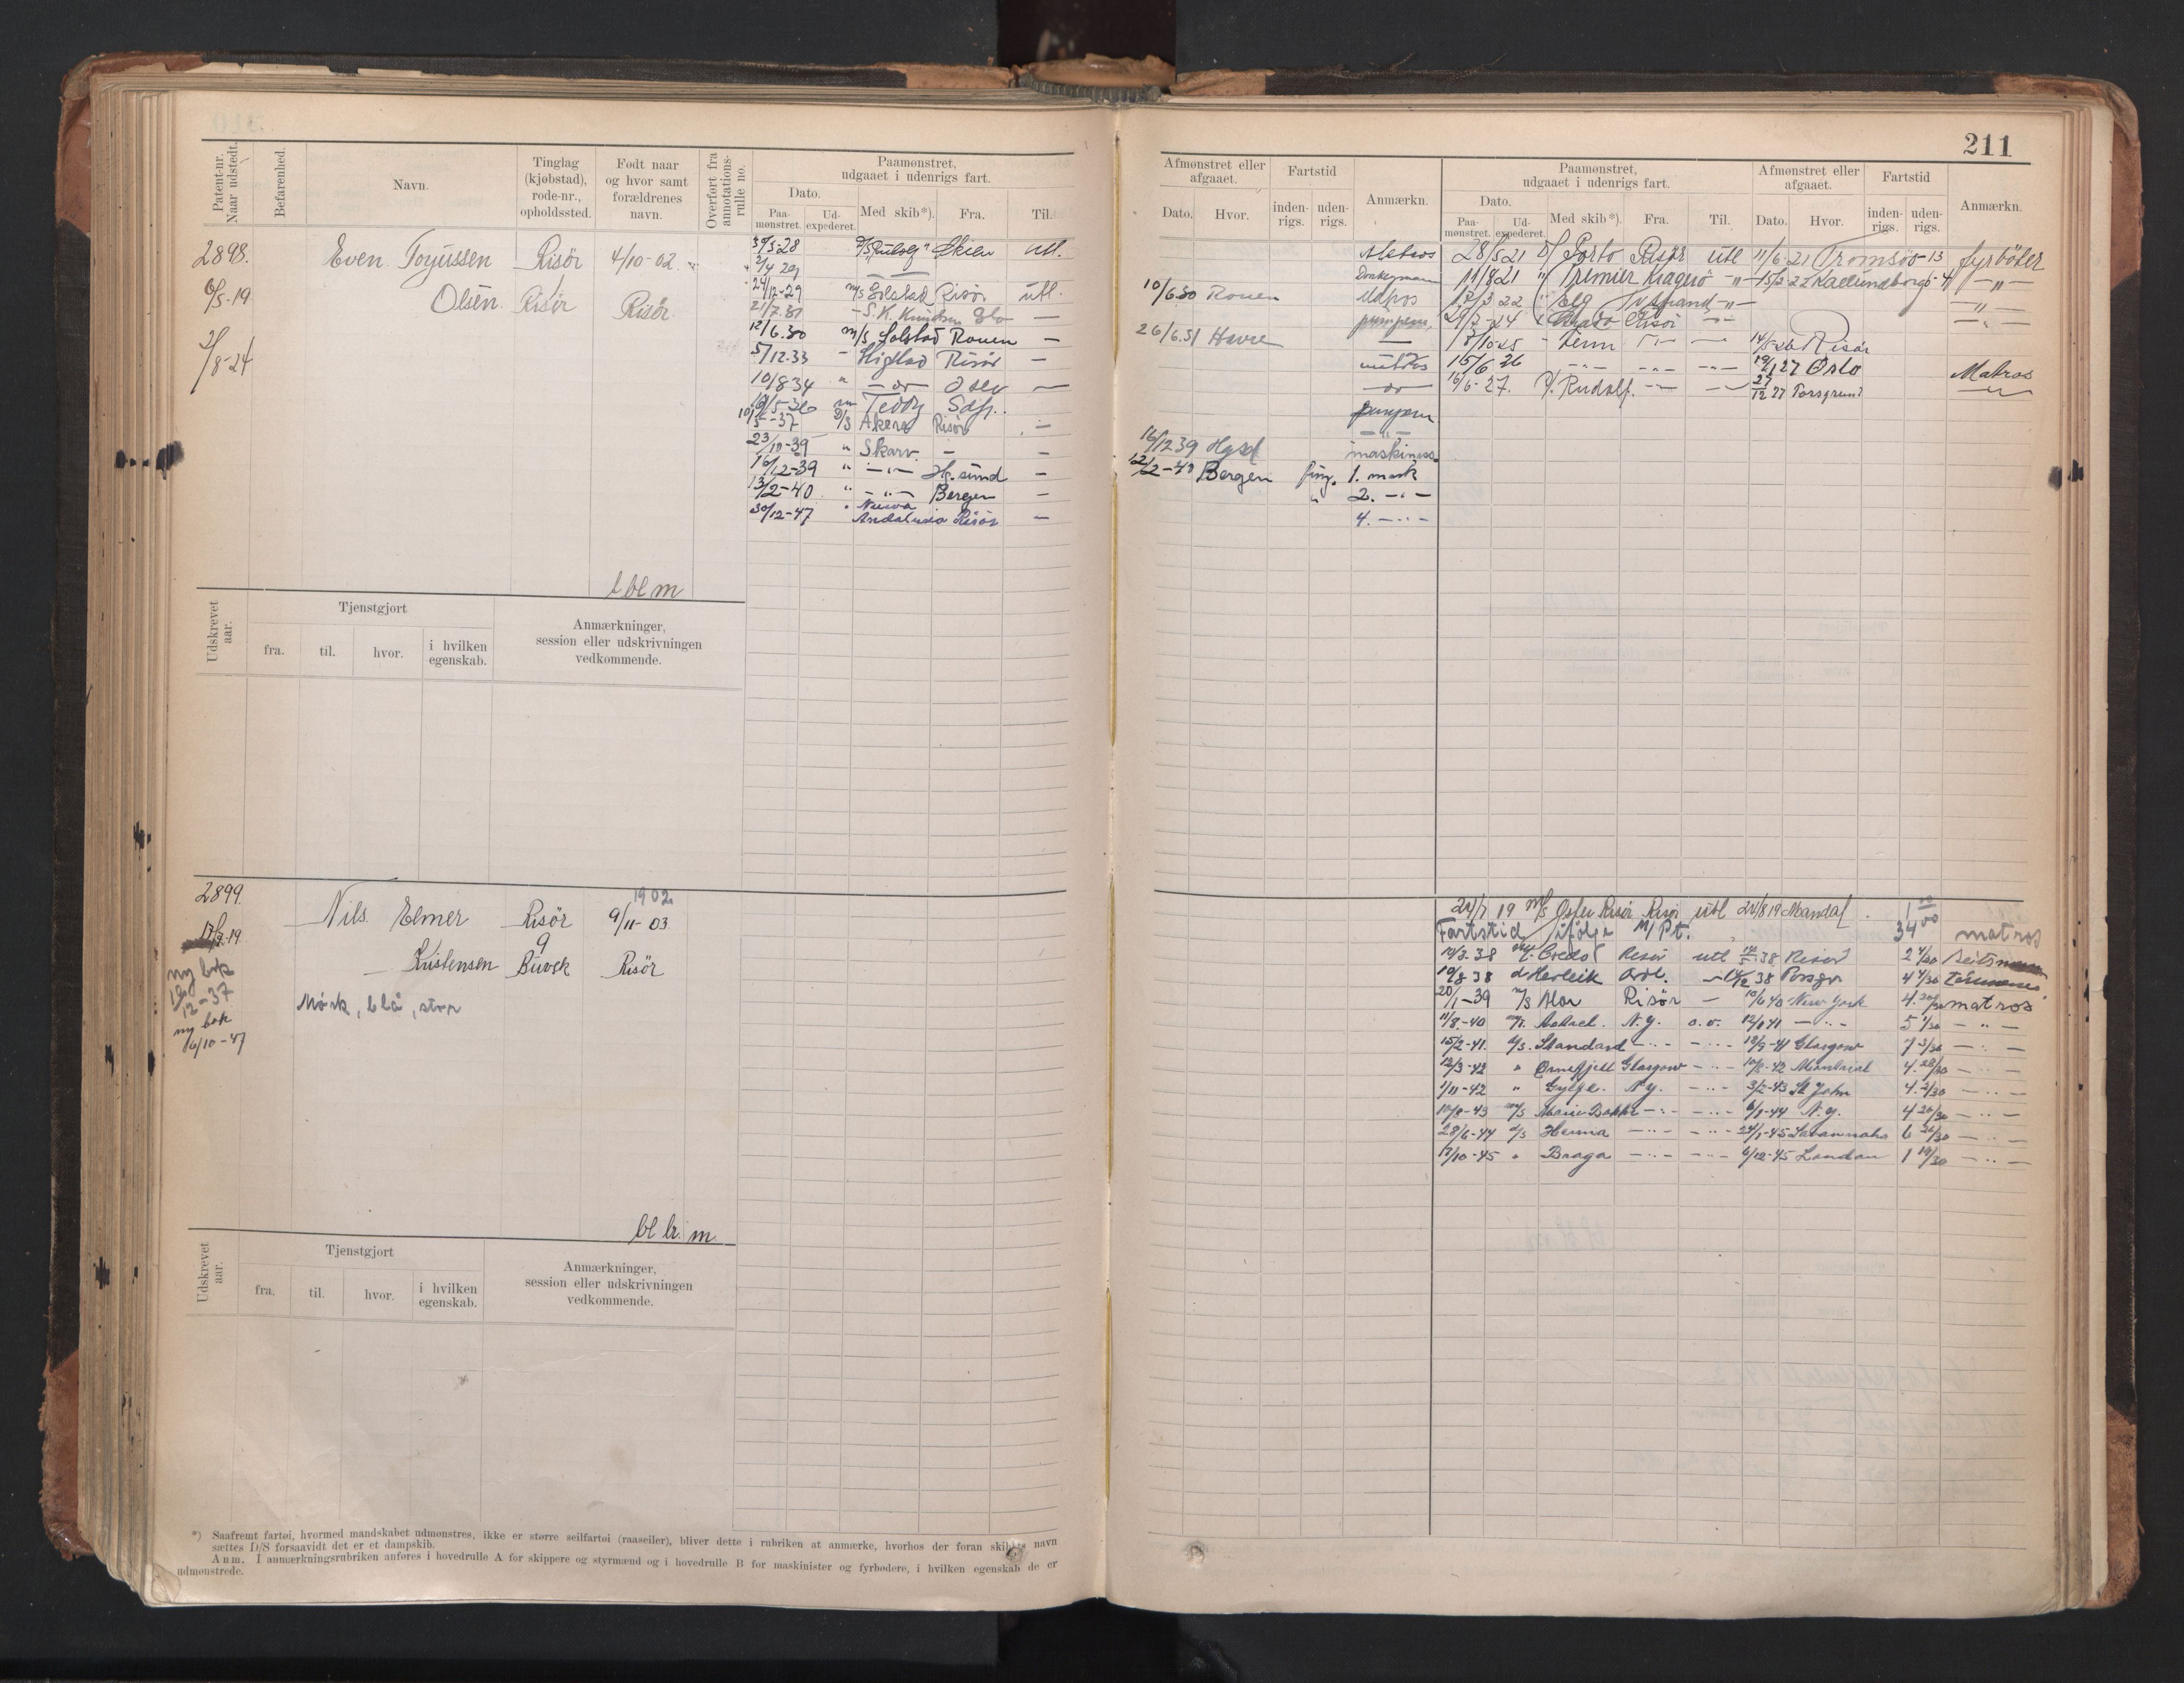 211
Patent-nr. Naar udstedt.
Befarenhed.
Navn.
Tinglag (kjøbstad), rode-nr., opholdssted.
Født naar og hvor samt forældrenes navn.
Overført fra annotations-rulle no.
Paamønstret, udgaaet i udenrigs fart.
Dato.
Paa-mønstret.
Ud-expederet.
Med skib*).
Fra.
Til.
Afmønstret eller afgaaet.
Dato.
Hvor.
Fartstid
inden-rigs.
uden-rigs.
Anmærkn.
Paamønstret, udgaaet i udenrigs fart.
Dato.
Paa-mønstret.
Ud-expederet.
Med skib*).
Fra.
Til.
Afmønstret eller afgaaet.
Dato.
Hvor.
Fartstid
inden-rigs.
uden-rigs.
Anmærkn.
2898.
Even Torjussen Risör 4/10-02
Olsen. Risör Risör
6/5-19
2/8-24
Skien utl.
2/4 29
24/12-29 m/s Solstad Risör utl.
21/7.31 - S. K. Knudsen Oslo —
12/6.30 m/s Solstad Rouen —
5/12.33 - Risör —
10/8 34 " — do — Oslo —
Teddy
-37 D/S Akera Risör —
23/10-39 " Skarv. — —
16/12-39 " — " — H.sund —
13/2-40 " — " — Bergen —
30/12-47 " Nueva Andalusia Risör —
Matros
Donkeyman
10/6 30 Rouen
26/6.31 Havre
pumpem.
— do —
pumpem
— " —
16/12 39 Hgsd maskinass.
12/2-40 Bergen fung. 1. mask
" 2. — " —
4. — " —
28/5 21 D/ Porto Risör utl 11/6-21 Tromsöe -13 fyrböter
11/8 21 " Premier Kragerö — " — 15/2-22 Kallundborg 6-4 — " —
17/3 22 " Elg — " — — " —
29/7-24 Risör — " — — " —
18/10 25 - — " — 14/5-26 Risör
15/6 26 — " — — " — — " — 19/1 27 Oslo Matros
16/6-27. D/. Rudolf. — " — — " — 27/12 27 Porsgrund — " —
l bl m
Udskrevet aar.
Tjenstgjort
fra.
til.
hvor.
i hvilken egenskab.
Anmærkninger, session eller udskrivningen vedkommende.
2899.
1902.
Nils Elmer Risör 9/11-03
9
Kristensen Buvek Risör
-19
ny bok
12-37
ny bok
6/10-47
Mörk, blå, stor
24/7 19 m/s Oster Risör Risör utl 24/8 19 Mandal 1
Fartstid ifölge M/Pt. 34 00 matros
Credo Risör utl 38 Risör 2
19/8 38 d Herleik 38 Porsgr 4
20/1-39 m/s Alar Risör — 10/6 40 New York 4. matros
11/8-40 N.Y. o.v. 12/1 41 — " — 5 — " —
15/2-41. d/s. Standard — " — — " — 18/9-41 Glasgow 7 3/30 — " —
12/3-42 " Ornefjell Glasgow — " — 10/8-42 Montreal 4. 28/30 — " —
1/11-42 " Gylfe. N.Y. — " — 3/2-43 St John 4. 2/30 — " —
m/s Marie Bakke — " — — " — 6/1-44 N.Y. 4 20/30 — " —
28/6-44 d/s Henna — " — — " — 24/1-45 Savannaha 6 26/30 — " —
17/10-45 " Braga — " — — " — 6/12-45 London 1 19/30 — " —
bl br. m.
Udskrevet aar.
Tjenstgjort
fra.
til.
hvor.
i hvilken egenskab.
Anmærkninger, session eller udskrivningen vedkommende.
*) Saafremt fartøi, hvormed mandskabet udmønstres, ikke er større seilfartøi (raaseiler), bliver dette i rubriken at anmærke, hvorhos der foran skibets navn
sættes D/S forsaavidt det er et dampskib.
Anm. I anmærkningsrubriken anføres i hovedrulle A for skippere og styrmænd og i hovedrulle B for maskinister og fyrbødere, i hvilken egenskab de er
udmønstrede.